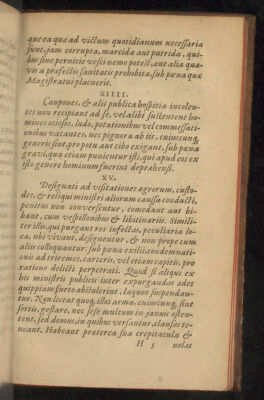 que ea quæ ad victum quotidianum necessaria
sunt, jam corrupta, marcida aut putrida, qui-
bus sine pernicie vesci nemo potest, aut alia quæ-
vis a præfectis sanitatis prohibita, sub pœna quæ
Magistratui placuerit.
XIIII.
Caupones, & alii publica hospitia incolen-
tes non recipiant ad se, vel alibi sustentent ho-
mines ociosos, ludo, potationibus vel commessati-
onibus vacantes, nec pignora ab iis, cuiuscunq;
generis sint, pro potu aut cibo exigant, sub pœna
gravi, qua etiam punientur isti, qui apud eos ex
isto genere hominum fuerint deprahensi.
XV.
Designati ad visitationes agrorum, custo-
des, & reliqui ministri aliorum causa conducti,
penitus non conversentur, comedant aut bi-
bant, cum vespillonibus & libitinariis. Simili-
ter illi, qui purgant res infectas, peculiaria lo-
ca, ubi vivant, designentur, & non prope cum
aliis colloquantur: sub pœna exilii, condemnati-
onis ad triremes, carceris, vel etiam capitis, pro
ratione delicti perpetrati. Quod si aliqui ex
his ministris publicis inter expurgandas ædes
quippiam furto abstulerint, laqueo suspendan-
tur. Non liceat quoq; illos arma, cuiuscunq; sint
sortis, gestare, nec sese multum in januis osten-
tent, sed domus, in quibus versantur, clausas te-
neant. Habeant præterea sua crepitacula &
H 5 nolas